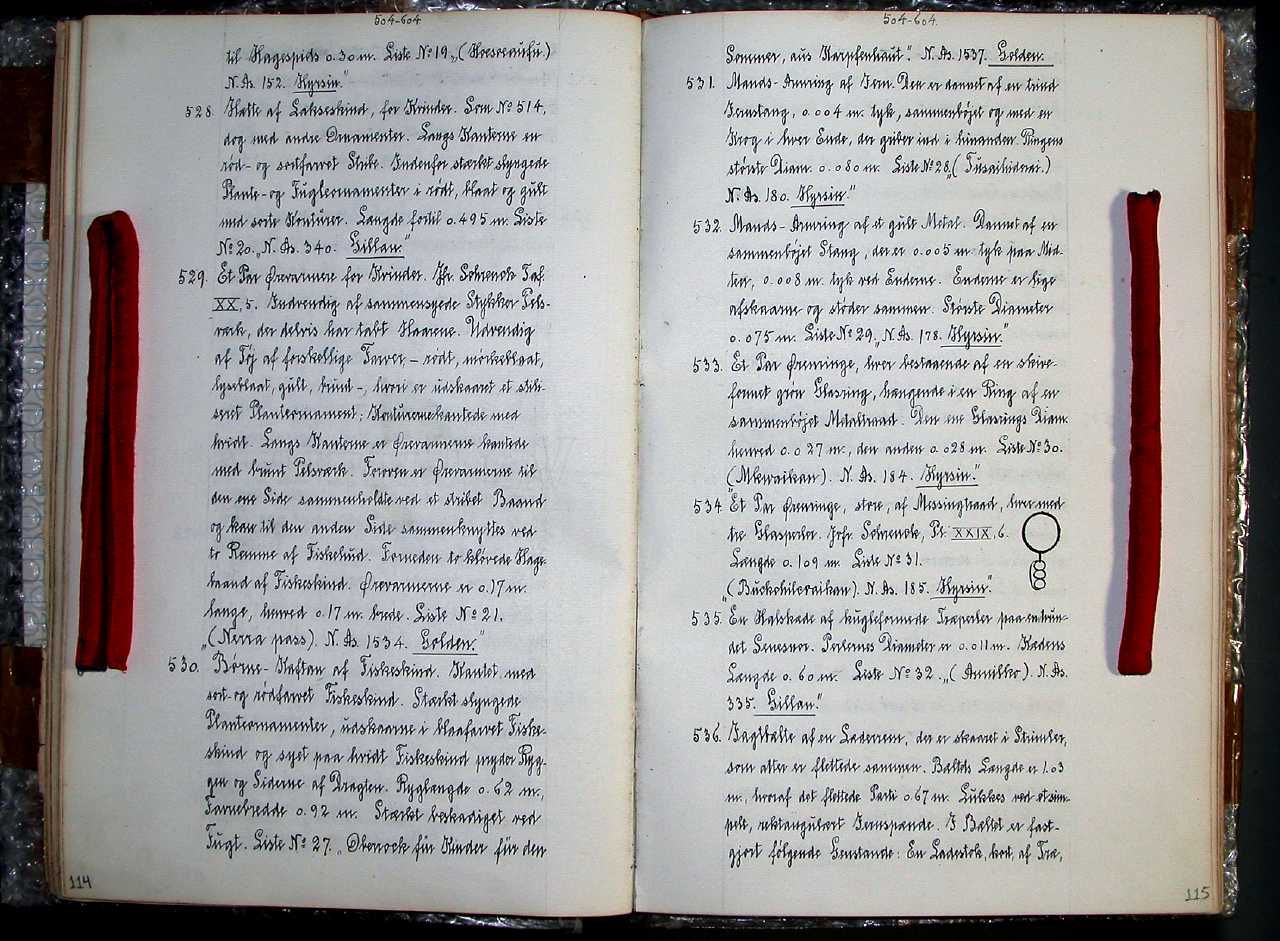 504-604
til Hagespids 0.30 m. Liste Nº 19. „(
N. As. 152.
528. Hatte af Lakseskind, for Kvinder. Som Nº 514,
dog med andre Ornamenter. Langs Kanterne en
rød- og sortfarvet Stribe. Indenfor stærkt slyngede
Plante- og Fugleornamenter i rødt, blaat og gült
med sorte Konturer. Længde fortil 0.495 m. Liste
Nº 20. „N. As. 340. Gillan."
529. Et Par Ørevarmere for Kvinder. Jfr. Schrenck Taf.
XX, 5. Indvendig af sammensyede Stykker Pels-
værk, der delvis har tabt Haarene. Udvendig
af Töj af forskellige Farver, – rødt, mörkeblaat,
lyseblaat, gült, hvidt –, hvori er üdskaaret et stili-
seret Planteornament; Konturerne kantede med
hvidt. Langs Kanterne er Ørevarmerne kantede
med brünt Pelsværk. Foroven er Ørevarmerne til
den ene Side sammenholdte ved et stribet Baand
og kan til den anden Side sammenknyttes ved
to Remme af Fiskehud. Forneden to kløvede Hage-
baand af Fiskeskind. Ørevarmerne er 0.17 m.
lange, henved 0.17 m. brede. Liste Nº 21.
„(Nerra pass). N. As. 1534. Golden."
530. Børne-Kaftan af Fiskeskind. Kantet med
sort- og rödfarvet Fiskeskind. Stærkt slyngede
Planteornamenter, üdskaarne i blaafarvet Fiske-
skind og syet paa hvidt Fiskeskind pryder Ryg-
gen og Siderne af Dragten. Ryglængde 0.62 m.,
Favnebredde 0.92 m. Stærkt beskadiget ved
Fugt. Liste Nº 27. „Oberrock für Kinder für den
114
504-604.
Sommer, aus Karpfenhaut". N. As. 1537. Golden.
531. Mands-Armring af Jern. Den er dannet af en tünd
Jernstang, 0.004 m. tyk, sammenböjet og med en
Krog i hver Ende, der griber ind i hinanden. Ringens
største Diam. 0.080 m. Liste Nº 28. „(
N. As. 180.
532. Mands-Armring af et gült Metal. Dannet af en
sammenböjet Stang, der er 0.005 m. tyk paa Mid-
ten, 0.008 m. tyk ved Enderne. Enderne er lige
afskaarne og støder sammen. Største Diameter
0.075 m. Liste Nº 29. „N. As. 178.
533. Et Par Øreringe, hver bestaaende af en skive-
formet grøn Glasring, hængende i en Ring af en
sammenböjet Metaltraad. Den ene Glasrings Diam.
henved 0.027 m., den anden 0.028 m. Liste Nº 30.
N. As. 184.
534. Et Par Øreringe, store, af Messingtraad, hver med
tre Glasperler. Jvfr. Schrenck, Pl. XXIX, 6.
Længde 0.109 m. Liste Nº 31.
N. As. 185.
535. En Halskæde af kugleformede Træperler paa en tvun-
det Senesnor. Perlernes Diameter er 0.011 m. Kædens
Længde 0.60 m. Liste Nº 32. „(Annilko). N. As.
335. Gillan."
536. Jagtbælte af en Læderrem, der er skaaret i Strimler,
som atter er flettede sammen. Bæltets Længde er 1.03
m., hvoraf det flettede Parti 0.67 m. Lukkes ved et sim-
pelt, rektangulært Jernspænde. I Bæltet er fast-
gjort følgende Genstande: En Ladestok, kort, af Træ,
115